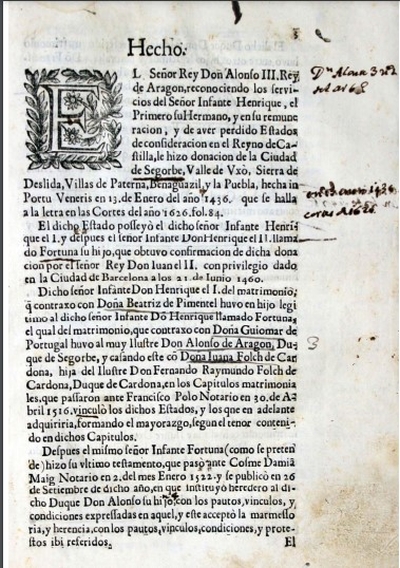 Hecho.
EL Señor Rey Don Alonso III. Rey
de Aragon, reconociendo los servi-
cios del Señor Infante Henrique, el
Primero su Hermano, y en su remune
racion, y de aver perdido Estados
de consideracion en el Reyno de Ca-
stilla, le hizo donacion de la Ciudad
de Segorbe, Valle de Vxò, Sierra de
Deslida, Villas de Paterna, Benaguazil, y la Puebla, hecha in
Portu Veneris en 13. de Enero del año 1436. que se halla
a la letra en las Cortes del año 1626. fol. 84.
El dicho Estado posseyò el dicho señor Infante Henri-
que el I. y despues el señor Infante Don Henrique el II. llama
do Fortuna su hijo, que obtuvo confirmacion de dicha dona
cion por el señor Rey Don Iuan el II. con privilegio dado
en la Ciudad de Barcelona a los 21. de Iunio 1460.
Dicho señor Infante Don Henrique el I. del matrimonio,
q̃ contraxo con Doña Beatriz de Pimentel huvo en hijo legi
timo al dicho señor Infante Dõ Henrique llamado Fortuna,
el qual del matrimonio, que contraxo con Doña Guiomar de
Portugal huvo al muy Ilustre Don Alonso de Aragon, Du-
que de Segorbe, y casando este cõ Doña Iuana Folch de Car
dona, hija del Ilustre Don Fernando Raymundo Folch de
Cardona, Duque de Cardona, en los Capitulos matrimonia
les, que passaron ante Francisco Polo Notario en 30. de A-
bril 1516. vinculo los dichos Estados, y los que en adelante
adquiriria, formando el mayorazgo, segun el tenor conteni-
do en dichos Capitulos.
Despues el mismo señor Infante Fortuna (como se preten
de) hizo su vltimo testamento, que pasò ante Cosme Damiã
Maig Notario en 2. del mes Enero 1522. y se publicò en 26
de Setiembre de dicho año, en que instituyò heredero al di-
cho Duque Don Alonso su hijo, con los pautos, vinculos, y
condiciones expressadas en aquel, y este acceptò la marmesso
ria, y herencia, con los pautos, vinculos, condiciones, y prote-
stos ibi referidos.
El
3